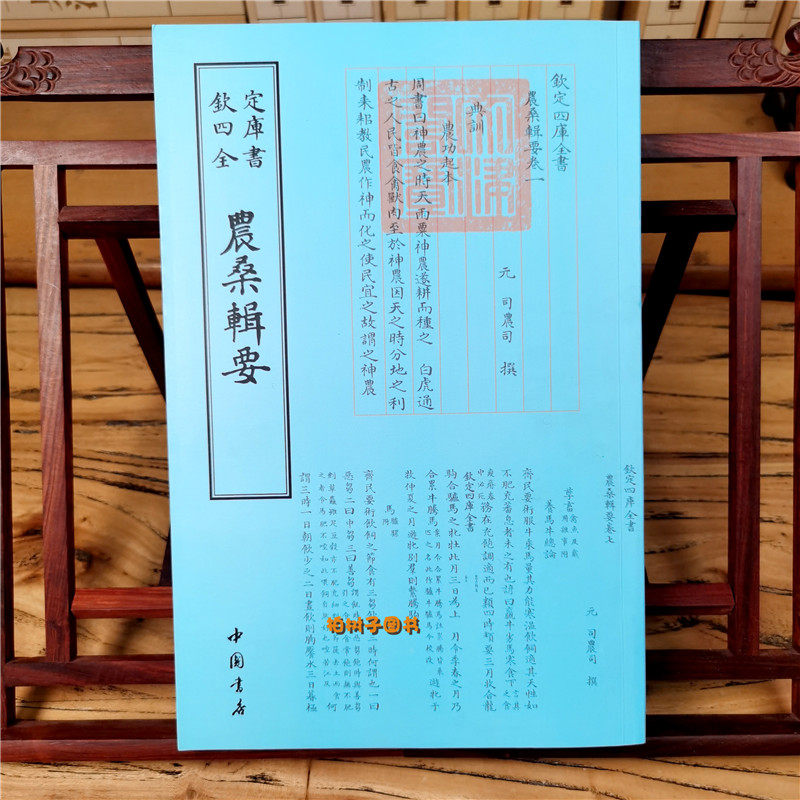 欽定四庫全書
農桑輯要
中國書店
欽定四庫全書
農桑輯要卷一
元 司農司 撰
典訓
農功起本
周書曰神農之時天雨粟神農遂耕而種之 白虎通
古之人民皆食禽獸肉至於神農因天之時分地之利
制耒耜教民農作神而化之使民宜之故謂之神農
欽定四庫全書
農桑輯要卷上
元 司農司 撰
養馬牛總論
齊民要術服牛乘馬量其力能寒溫飲飼適其天性如
不肥充蕃息者未之有也諺曰羸牛劣馬寒食下
務在充飽調適而已
欽定四庫全書
駒合驢馬之牝牡此月三日為上 月令季春之月乃
合累牛騰馬
遊牝于
牧仲夏之月遊牝別羣則縶騰駒
馬
驢騾
附
齊民要術飲飼之節食有三芻飲有三時何謂也一曰
惡芻二曰中芻三曰善芻
何
謂三時一曰朝飲少之二曰晝飲則胸饜水三曰暮極
柏树子图书